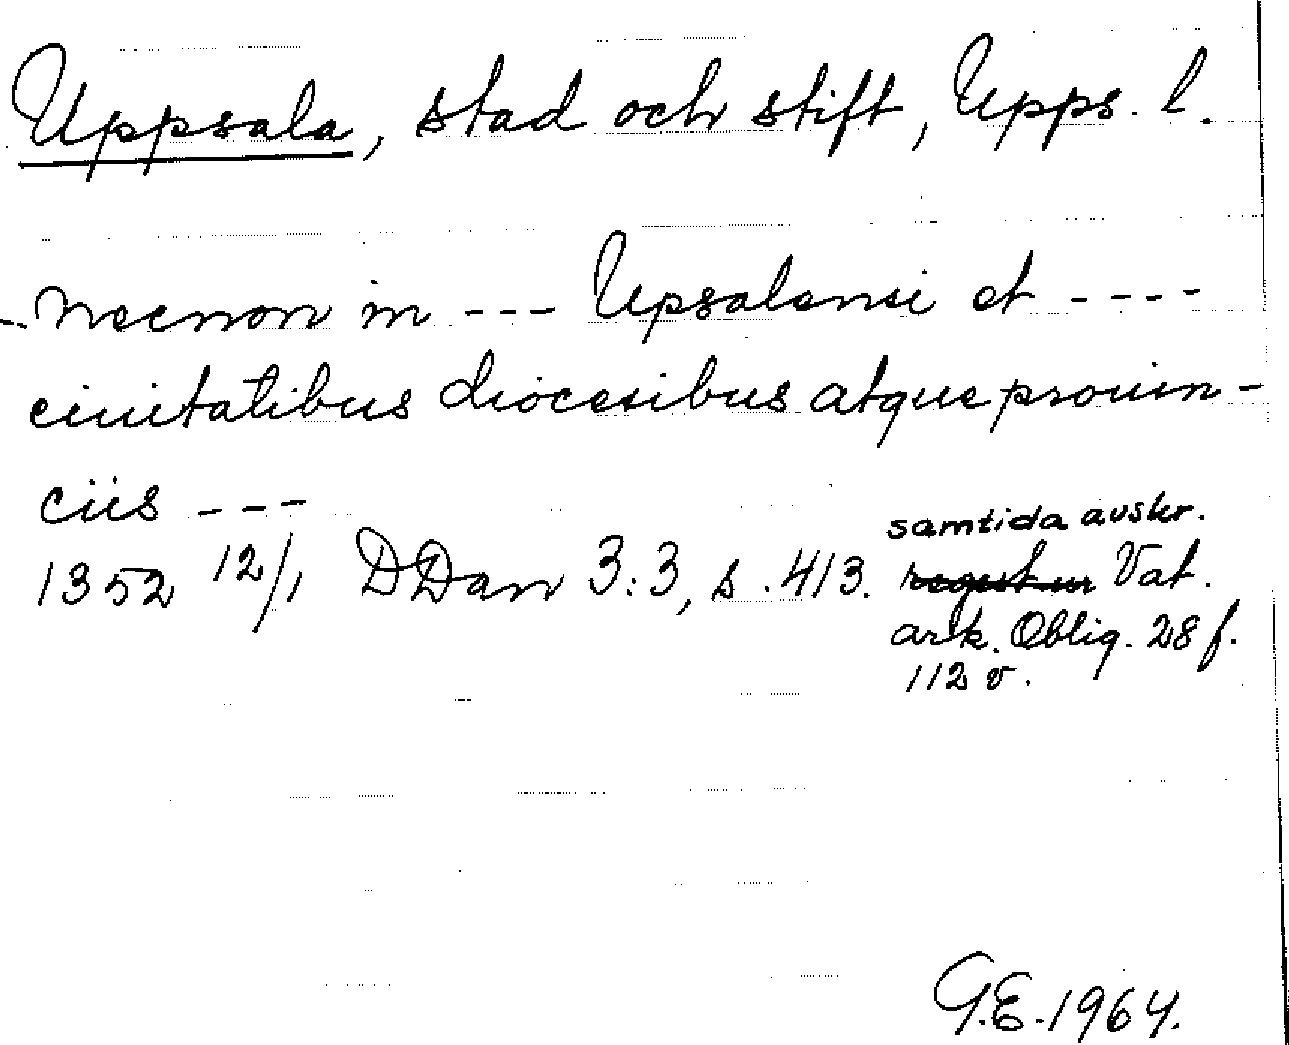 Uppsala, stad och stift, Upps. l.
- necnon in --- Upsalensi et ----
ciuitatibus diocesibus atque prouin-
ciis ---
samtida avskr.
1352 12/1 DDan 3:3, s. 413. regest ur Vat.
ark. Oblig. 28 f.
112 v.
G.E. 1964.